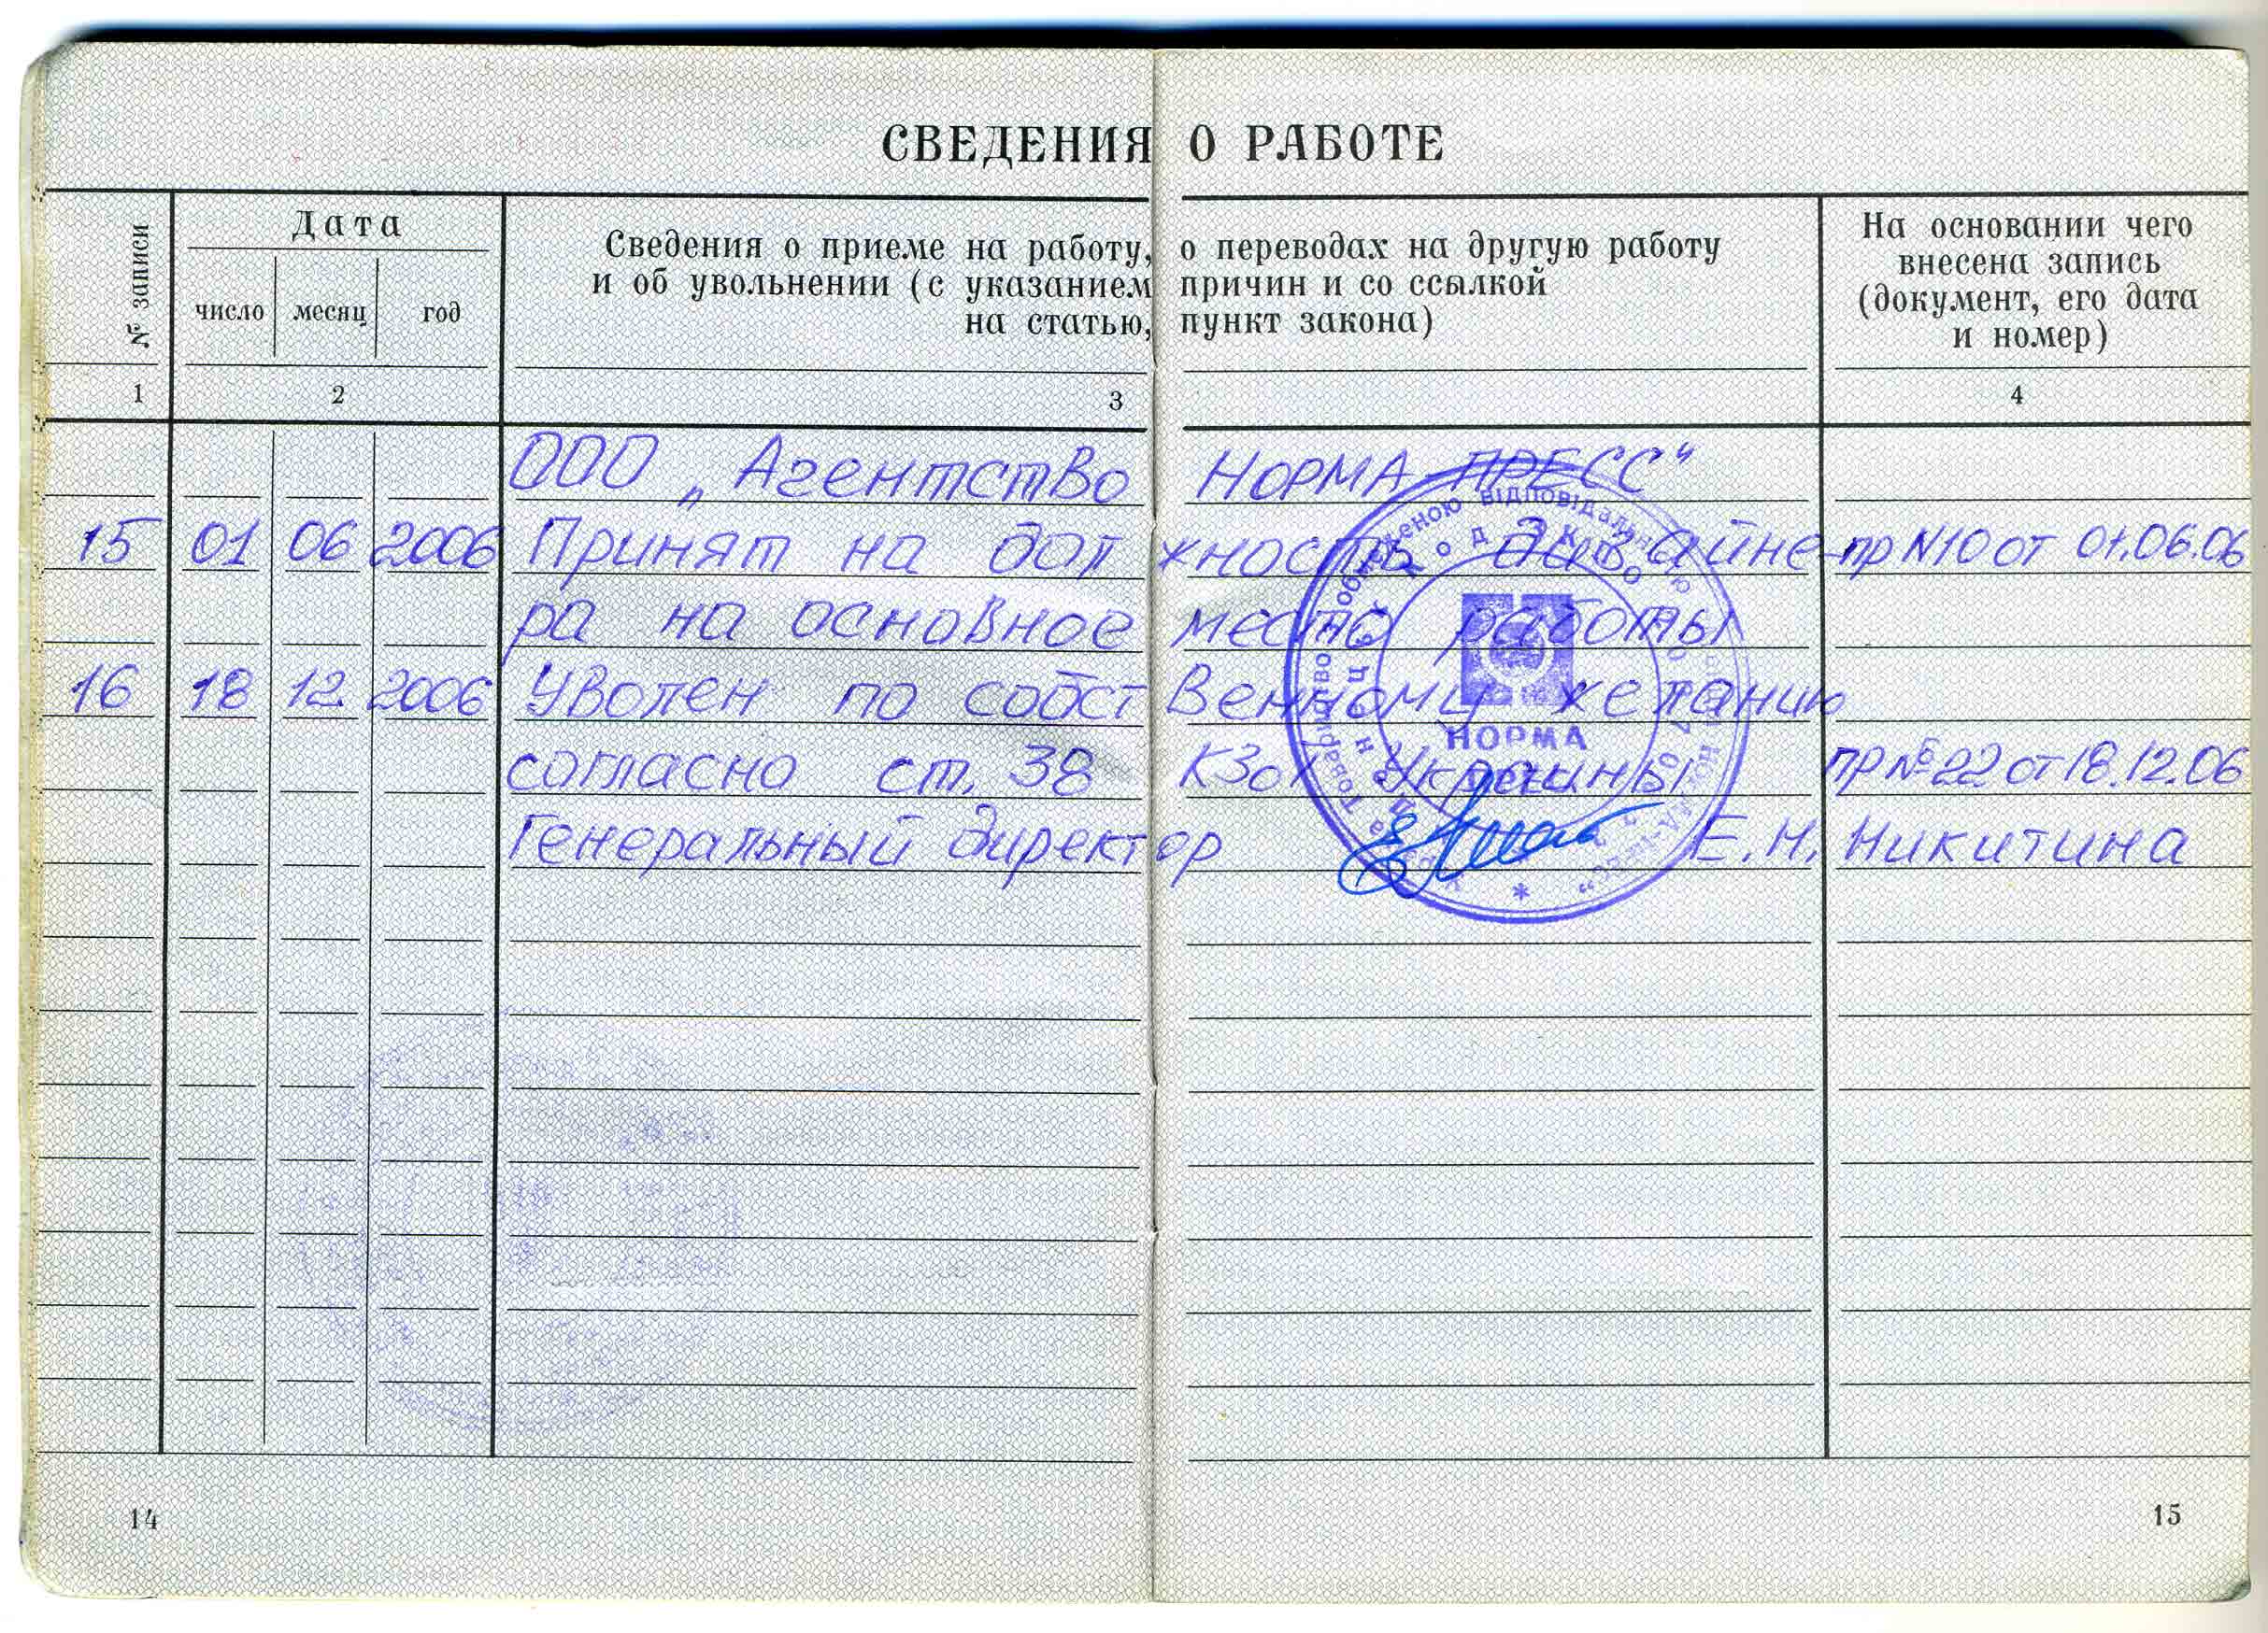 СВЕДЕНИЯ О РАБОТЕ
№ записи
Дата
число месяц год
Сведения о приеме на работу, о переводах на другую работу
и об увольнении (с указанием причин и со ссылкой
на статью, пункт закона)
На основании чего
внесена запись
(документ, его дата
и номер)
1 2 3 4
ООО „Агентство НОРМА ПРЕСС“
15 01 06 2006 Принят на должность дизайне- пр N10 от 01.06.06
ра на основное место работы
16 18 12 2006 Уволен по собственному желанию
согласно ст. 38 КЗоТ Украины пр №22 от 18.12.06
Генеральный директор Е.Н. Никитина
обмеженою відповідальністю
Товариство
Код ЗКПО
НОРМА
14
15